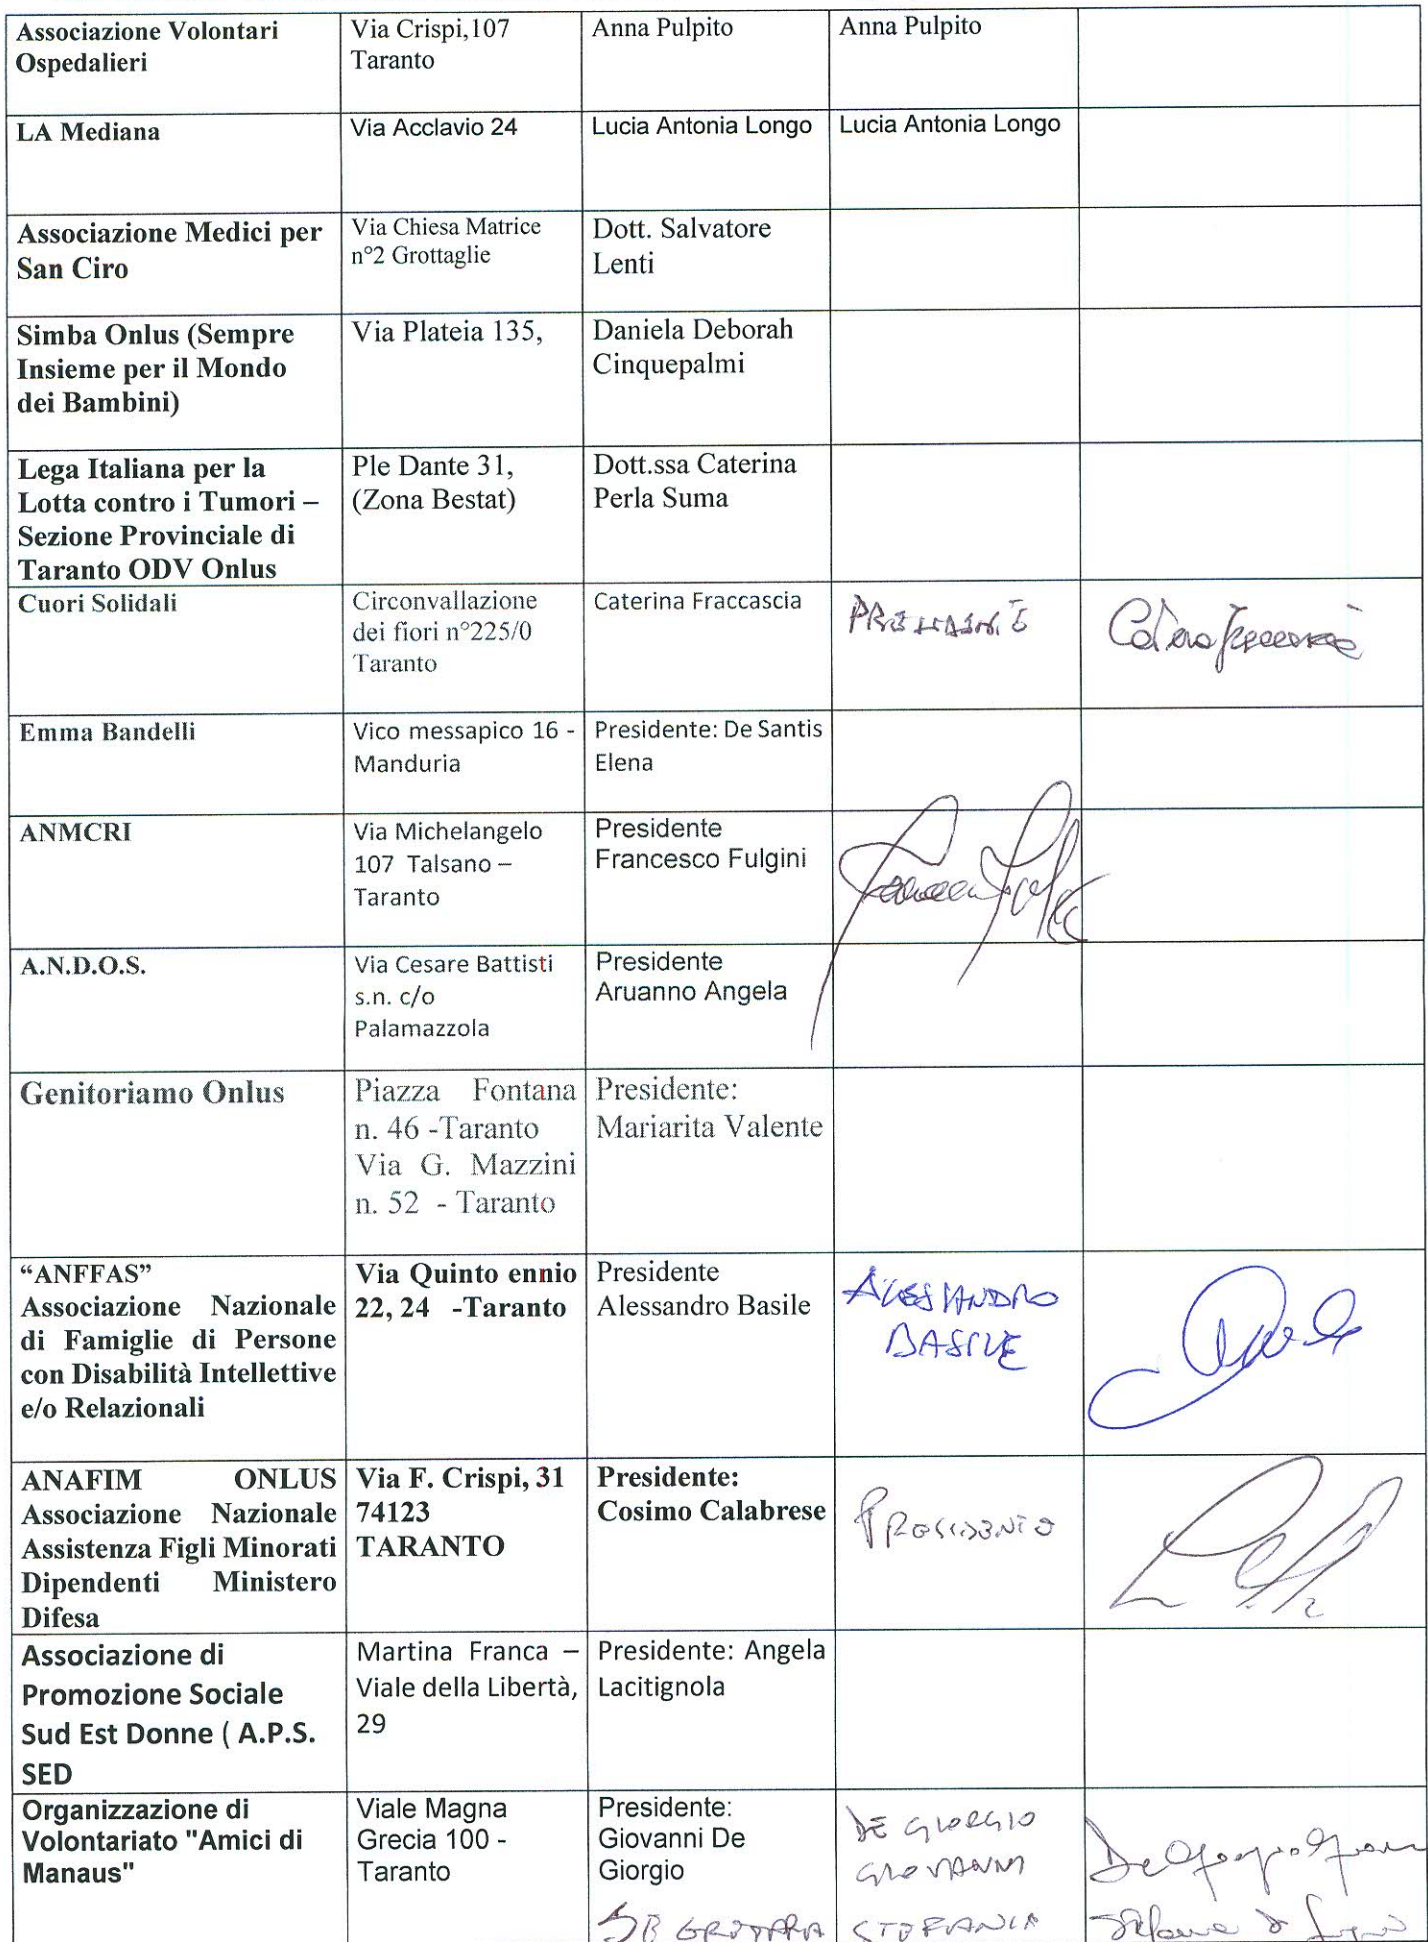 Associazione Volontari
Ospedalieri
Via Crispi,107
Taranto
Anna Pulpito
Anna Pulpito
LA Mediana
Via Acclavio 24
Lucia Antonia Longo
Lucia Antonia Longo
Associazione Medici per
San Ciro
Via Chiesa Matrice
n°2 Grottaglie
Dott. Salvatore
Lenti
Simba Onlus (Sempre
Insieme per il Mondo
dei Bambini)
Via Plateia 135,
Daniela Deborah
Cinquepalmi
Lega Italiana per la
Lotta contro i Tumori –
Sezione Provinciale di
Taranto ODV Onlus
Ple Dante 31,
(Zona Bestat)
Dott.ssa Caterina
Perla Suma
Cuori Solidali
Circonvallazione
dei fiori n°225/0
Taranto
Caterina Fraccascia
Emma Bandelli
Vico messapico 16 -
Manduria
Presidente: De Santis
Elena
ANMCRI
Via Michelangelo
107 Talsano –
Taranto
Presidente
Francesco Fulgini
A.N.D.O.S.
Via Cesare Battisti
s.n. c/o
Palamazzola
Presidente
Aruanno Angela
Genitoriamo Onlus
Piazza Fontana
n. 46 -Taranto
Via G. Mazzini
n. 52 - Taranto
Presidente:
Mariarita Valente
“ANFFAS”
Associazione Nazionale
di Famiglie di Persone
con Disabilità Intellettive
e/o Relazionali
Via Quinto ennio
22, 24 -Taranto
Presidente
Alessandro Basile
ALESSANDRO
BASILE
ANAFIM ONLUS
Associazione Nazionale
Assistenza Figli Minorati
Dipendenti Ministero
Difesa
Via F. Crispi, 31
74123
TARANTO
Presidente:
Cosimo Calabrese
PRESIDENTE
Associazione di
Promozione Sociale
Sud Est Donne ( A.P.S.
SED
Martina Franca –
Viale della Libertà,
29
Presidente: Angela
Lacitignola
Organizzazione di
Volontariato "Amici di
Manaus"
Viale Magna
Grecia 100 -
Taranto
Presidente:
Giovanni De
Giorgio
DE GIORGIO
GIOVANNI
STEFANIA